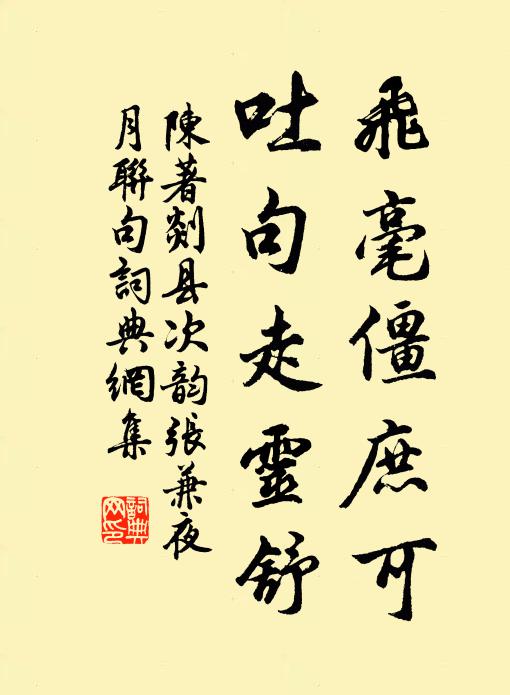 飛毫僵庶可
吐句走靈舒
陳著剡县次韵張兼夜
月聯句詞典網集
詞典网印